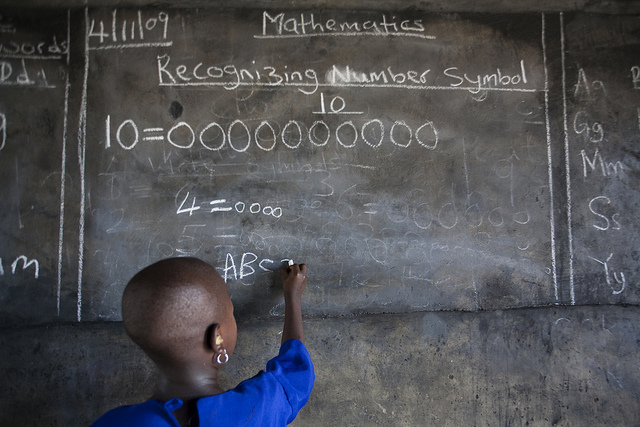 words
4/11/09
Mathematics
Recognizing Number Symbol
10
10=OOOOOOOOOO
4=oooo
5 =
ABC
Aa
Gg
Mm
Ss
Yy